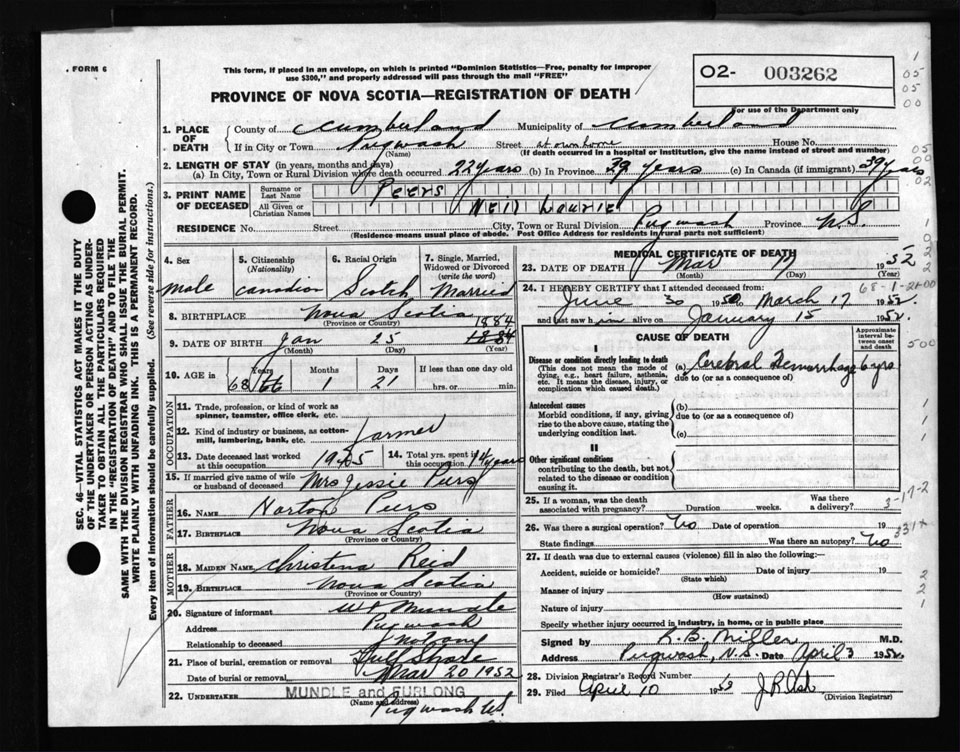 . FORM 6
This form, if placed in an envelope, on which is printed "Dominion Statistics—Free, penalty for improper
use $300," and properly addressed will pass through the mail "FREE"
PROVINCE OF NOVA SCOTIA—REGISTRATION OF DEATH
O2- 003262
For use of the Department only
1. PLACE OF DEATH
County of Cumberland Municipality of Cumberland
If in City or Town Pugwash Street at own home House No.
(Name) (If death occurred in a hospital or institution, give the name instead of street and number)
2. LENGTH OF STAY (in years, months and days)
(a) In City, Town or Rural Division where death occurred 22 years (b) In Province 39 years (c) In Canada (if immigrant) 39 years
3. PRINT NAME OF DECEASED
Surname or Last Name Peers
All Given or Christian Names Neil Laurie
RESIDENCE No. Street City, Town or Rural Division Pugwash Province N.S.
(Residence means usual place of abode. Post Office Address for residents in rural parts not sufficient)
4. Sex
male
5. Citizenship
(Nationality)
canadian
6. Racial Origin
Scotch
7. Single, Married,
Widowed or Divorced
(write the word)
Married
8. BIRTHPLACE Nova Scotia
(Province or Country)
9. DATE OF BIRTH Jan 25 1884
(Month) (Day) (Year)
10. AGE in
Years 68
Months 1
Days 21
If less than one day old
hrs. or min.
OCCUPATION
11. Trade, profession, or kind of work as
spinner, teamster, office clerk, etc.
12. Kind of industry or business, as cotton-
mill, lumbering, bank, etc. Farmer
13. Date deceased last worked
at this occupation 1945
14. Total yrs. spent in
this occupation 14 years
15. If married give name of wife
or husband of deceased Mrs Jessie Peers
FATHER
16. NAME Norton Peers
17. BIRTHPLACE Nova Scotia
(Province or Country)
MOTHER
18. MAIDEN NAME Christena Reid
19. BIRTHPLACE Nova Scotia
(Province or Country)
20. Signature of informant Mundle
Address Pugwash
Relationship to deceased
21. Place of burial, cremation or removal
Date of burial or removal Mar 20 1952
22. UNDERTAKER MUNDLE and FURLONG
(Name and address)
Pugwash N.S.
MEDICAL CERTIFICATE OF DEATH
23. DATE OF DEATH Mar 17 1952
(Month) (Day) (Year)
68-1-21-00
24. I HEREBY CERTIFY that I attended deceased from:
June 30 1950 to March 17 1952
and last saw him alive on January 15 1952.
CAUSE OF DEATH
Approximate
interval be-
tween onset
and death
I
Disease or condition directly leading to death
(This does not mean the mode of
dying, e.g., heart failure, asthenia,
etc. It means the disease, injury, or
complication which caused death.)
(a) Cerebral Hemorrhage 6 yrs
due to (or as a consequence of)
Antecedent causes
Morbid conditions, if any, giving
rise to the above cause, stating the
underlying condition last.
(b)
due to (or as a consequence of)
(c)
II
Other significant conditions
contributing to the death, but not
related to the disease or condition
causing it.
25. If a woman, was the death
associated with pregnancy? Duration weeks. Was there
a delivery?
3-17-2
26. Was there a surgical operation? No Date of operation 19
State findings Was there an autopsy? No
331+
27. If death was due to external causes (violence) fill in also the following:
Accident, suicide or homicide? Date of injury 19
(State which)
Manner of injury
(How sustained)
Nature of injury
Specify whether injury occurred in industry, in home, or in public place
Signed by K.B. Miller M.D.
Address Pugwash, N.S. Date April 3 1952.
28. Division Registrar's Record Number
29. Filed April 10 1952
(Division Registrar)
SEC. 46—VITAL STATISTICS ACT MAKES IT THE DUTY
OF THE UNDERTAKER OR PERSON ACTING AS UNDER-
TAKER TO OBTAIN ALL THE PARTICULARS REQUIRED
IN THE "REGISTRATION OF DEATH" AND TO FILE THE
SAME WITH THE DIVISION REGISTRAR WHO SHALL ISSUE THE BURIAL PERMIT.
WRITE PLAINLY WITH UNFADING INK. THIS IS A PERMANENT RECORD.
Every item of information should be carefully supplied. (See reverse side for instructions.)